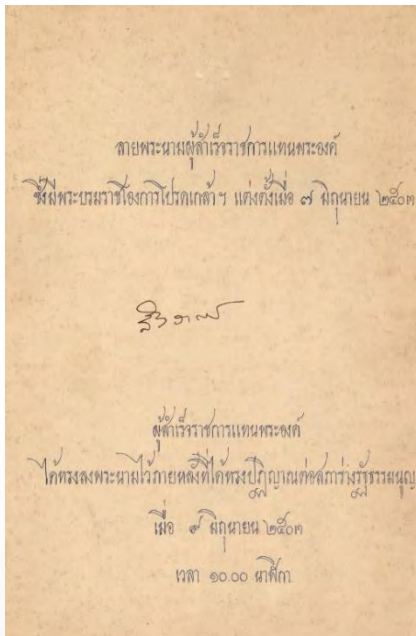 ลายพระนามผู้สำเร็จราชการแทนพระองค์
ซึ่งมีพระบรมราชโองการโปรดเกล้า ฯ แต่งตั้งเมื่อ ๗ มิถุนายน ๒๕๐๓
ผู้สำเร็จราชการแทนพระองค์
ได้ทรงลงพระนามไว้ภายหลังที่ได้ทรงปฏิญาณต่อสภาร่างรัฐธรรมนูญ
เมื่อ ๙ มิถุนายน ๒๕๐๓
เวลา ๑๐.๐๐ นาฬิกา